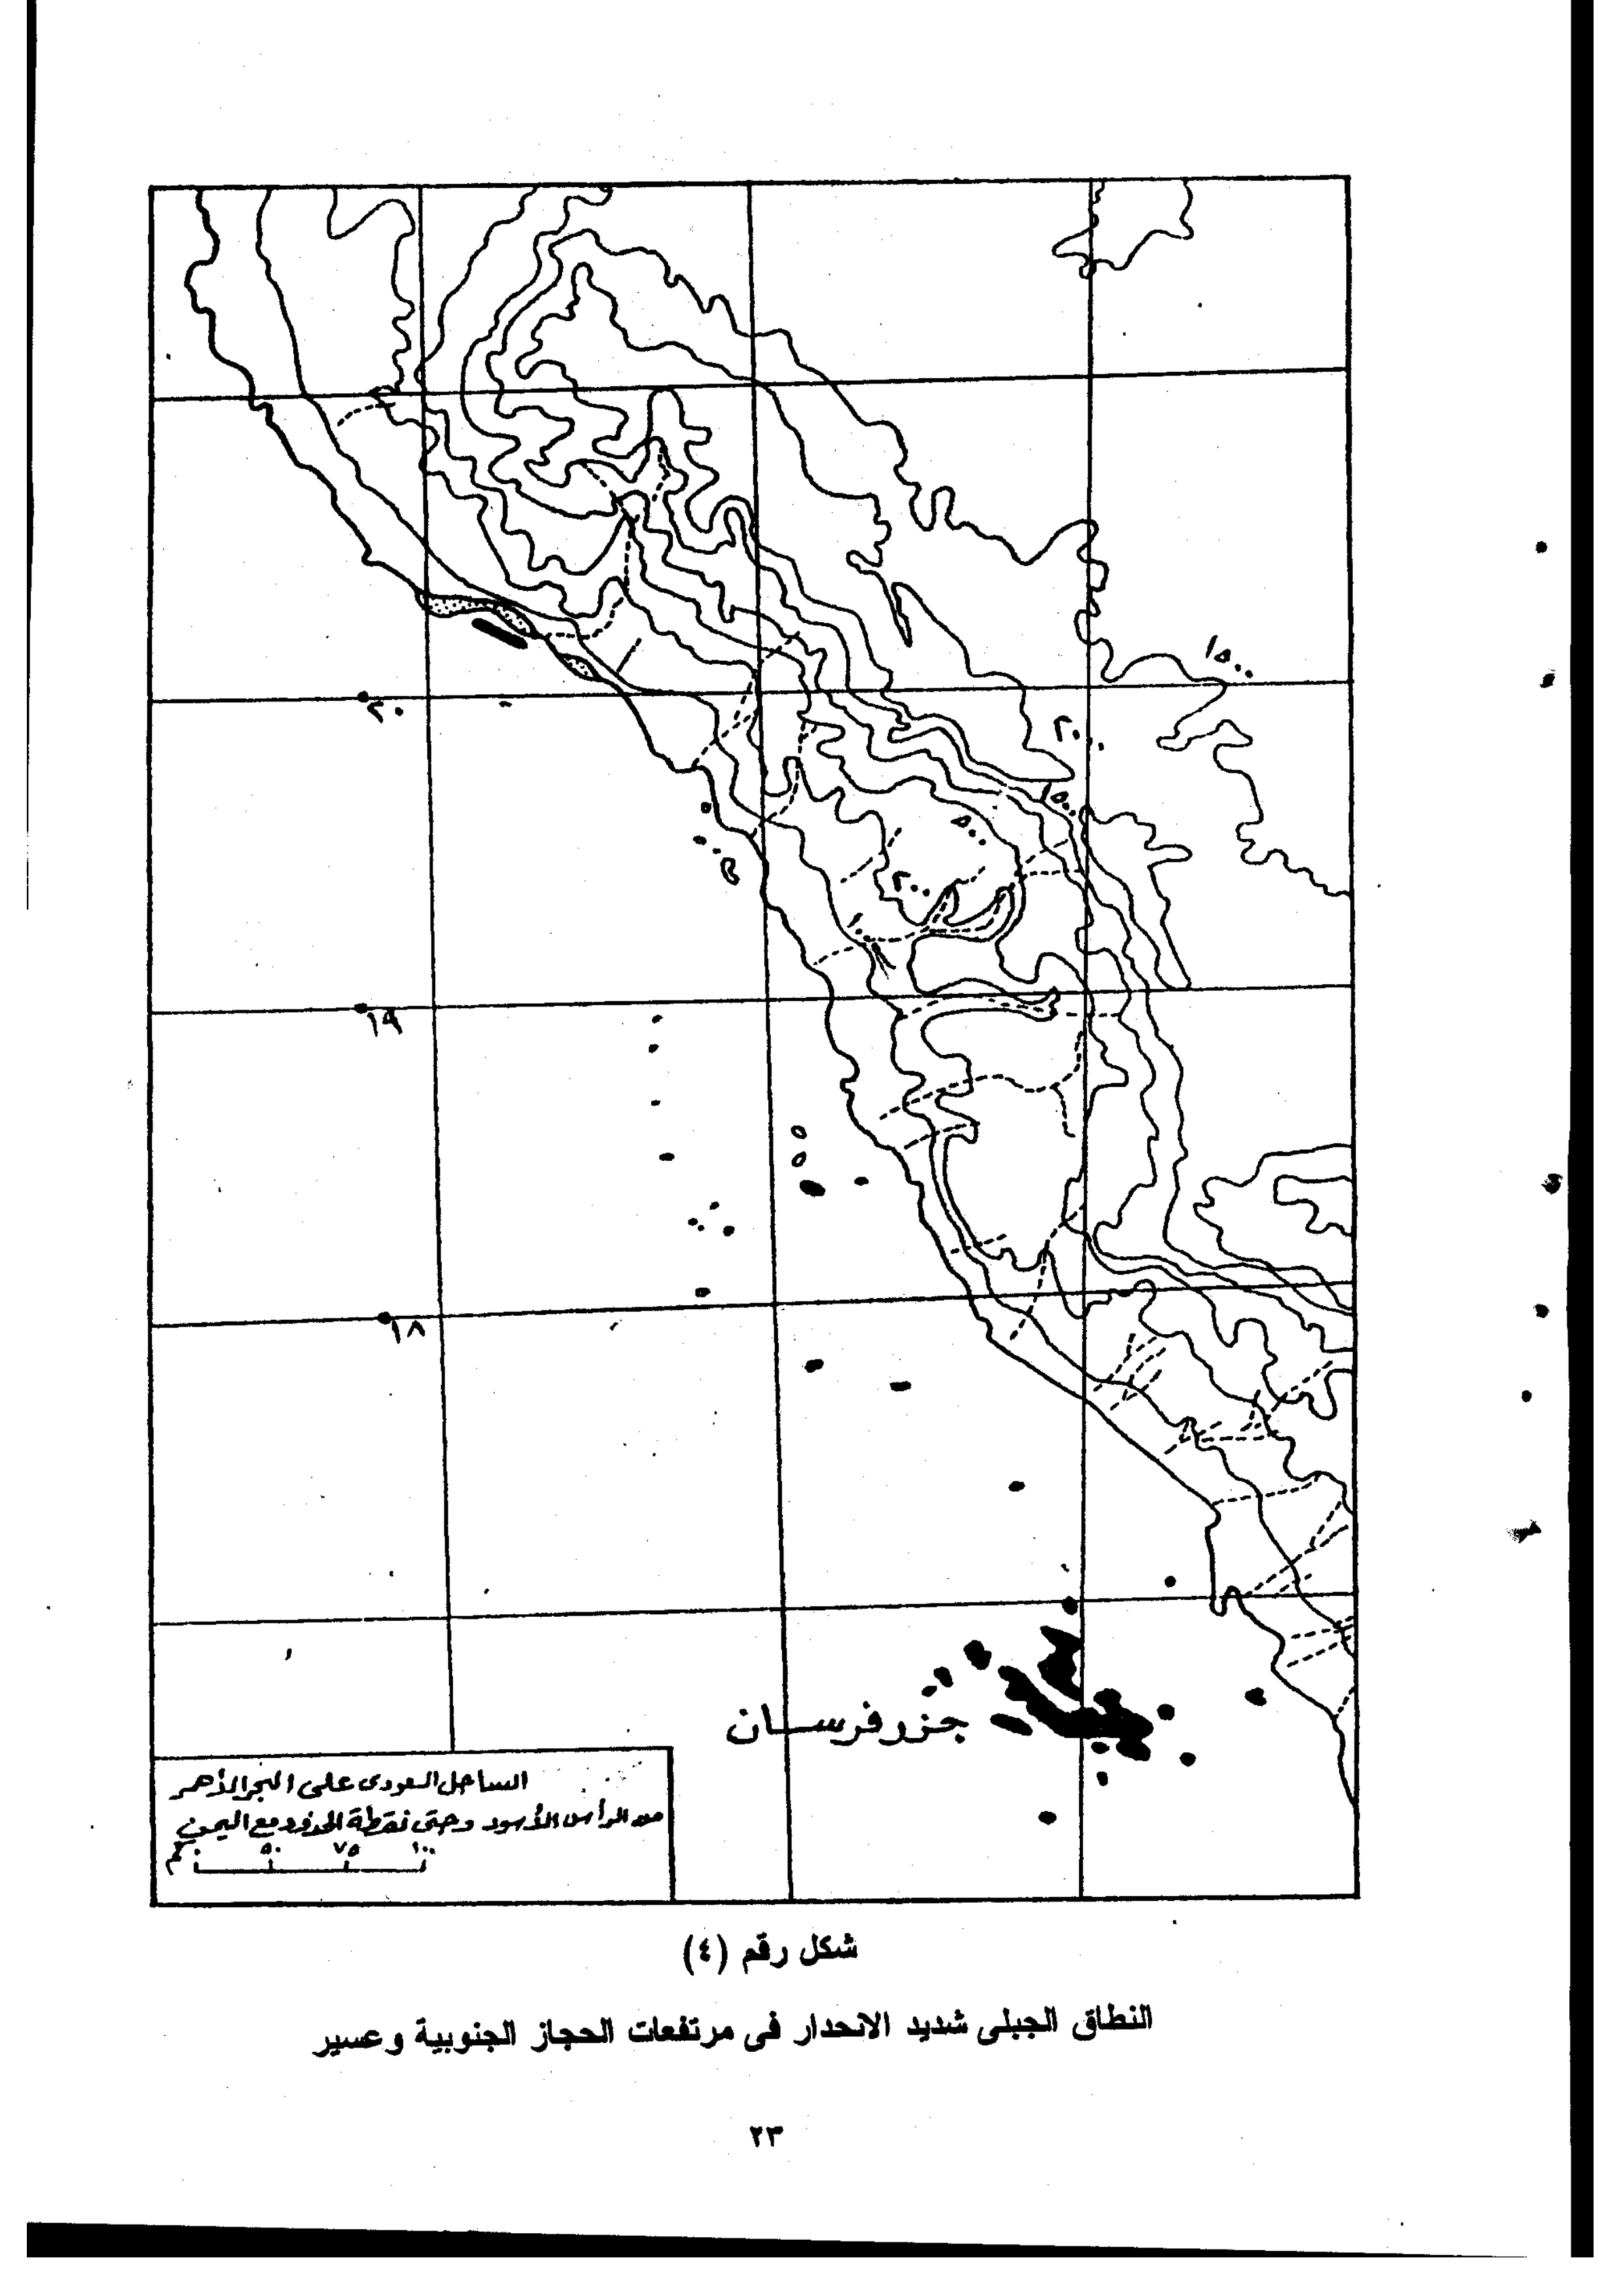 ١٥٠٠
٢٠
٢٠٠٠
١٥٠٠
٥٠٠
٢٠٠
١٠٠
١٩
١٨
جزر فرسان
الساحل السعودى على البحر الأحمر
من الرأس الأسود وحتى نقطة الحدود مع اليمن
٠ ٥٠ ٧٥ ١٠٠ كم
شكل رقم (٤)
النطاق الجبلى شديد الانحدار فى مرتفعات الحجاز الجنوبية وعسير
٢٣